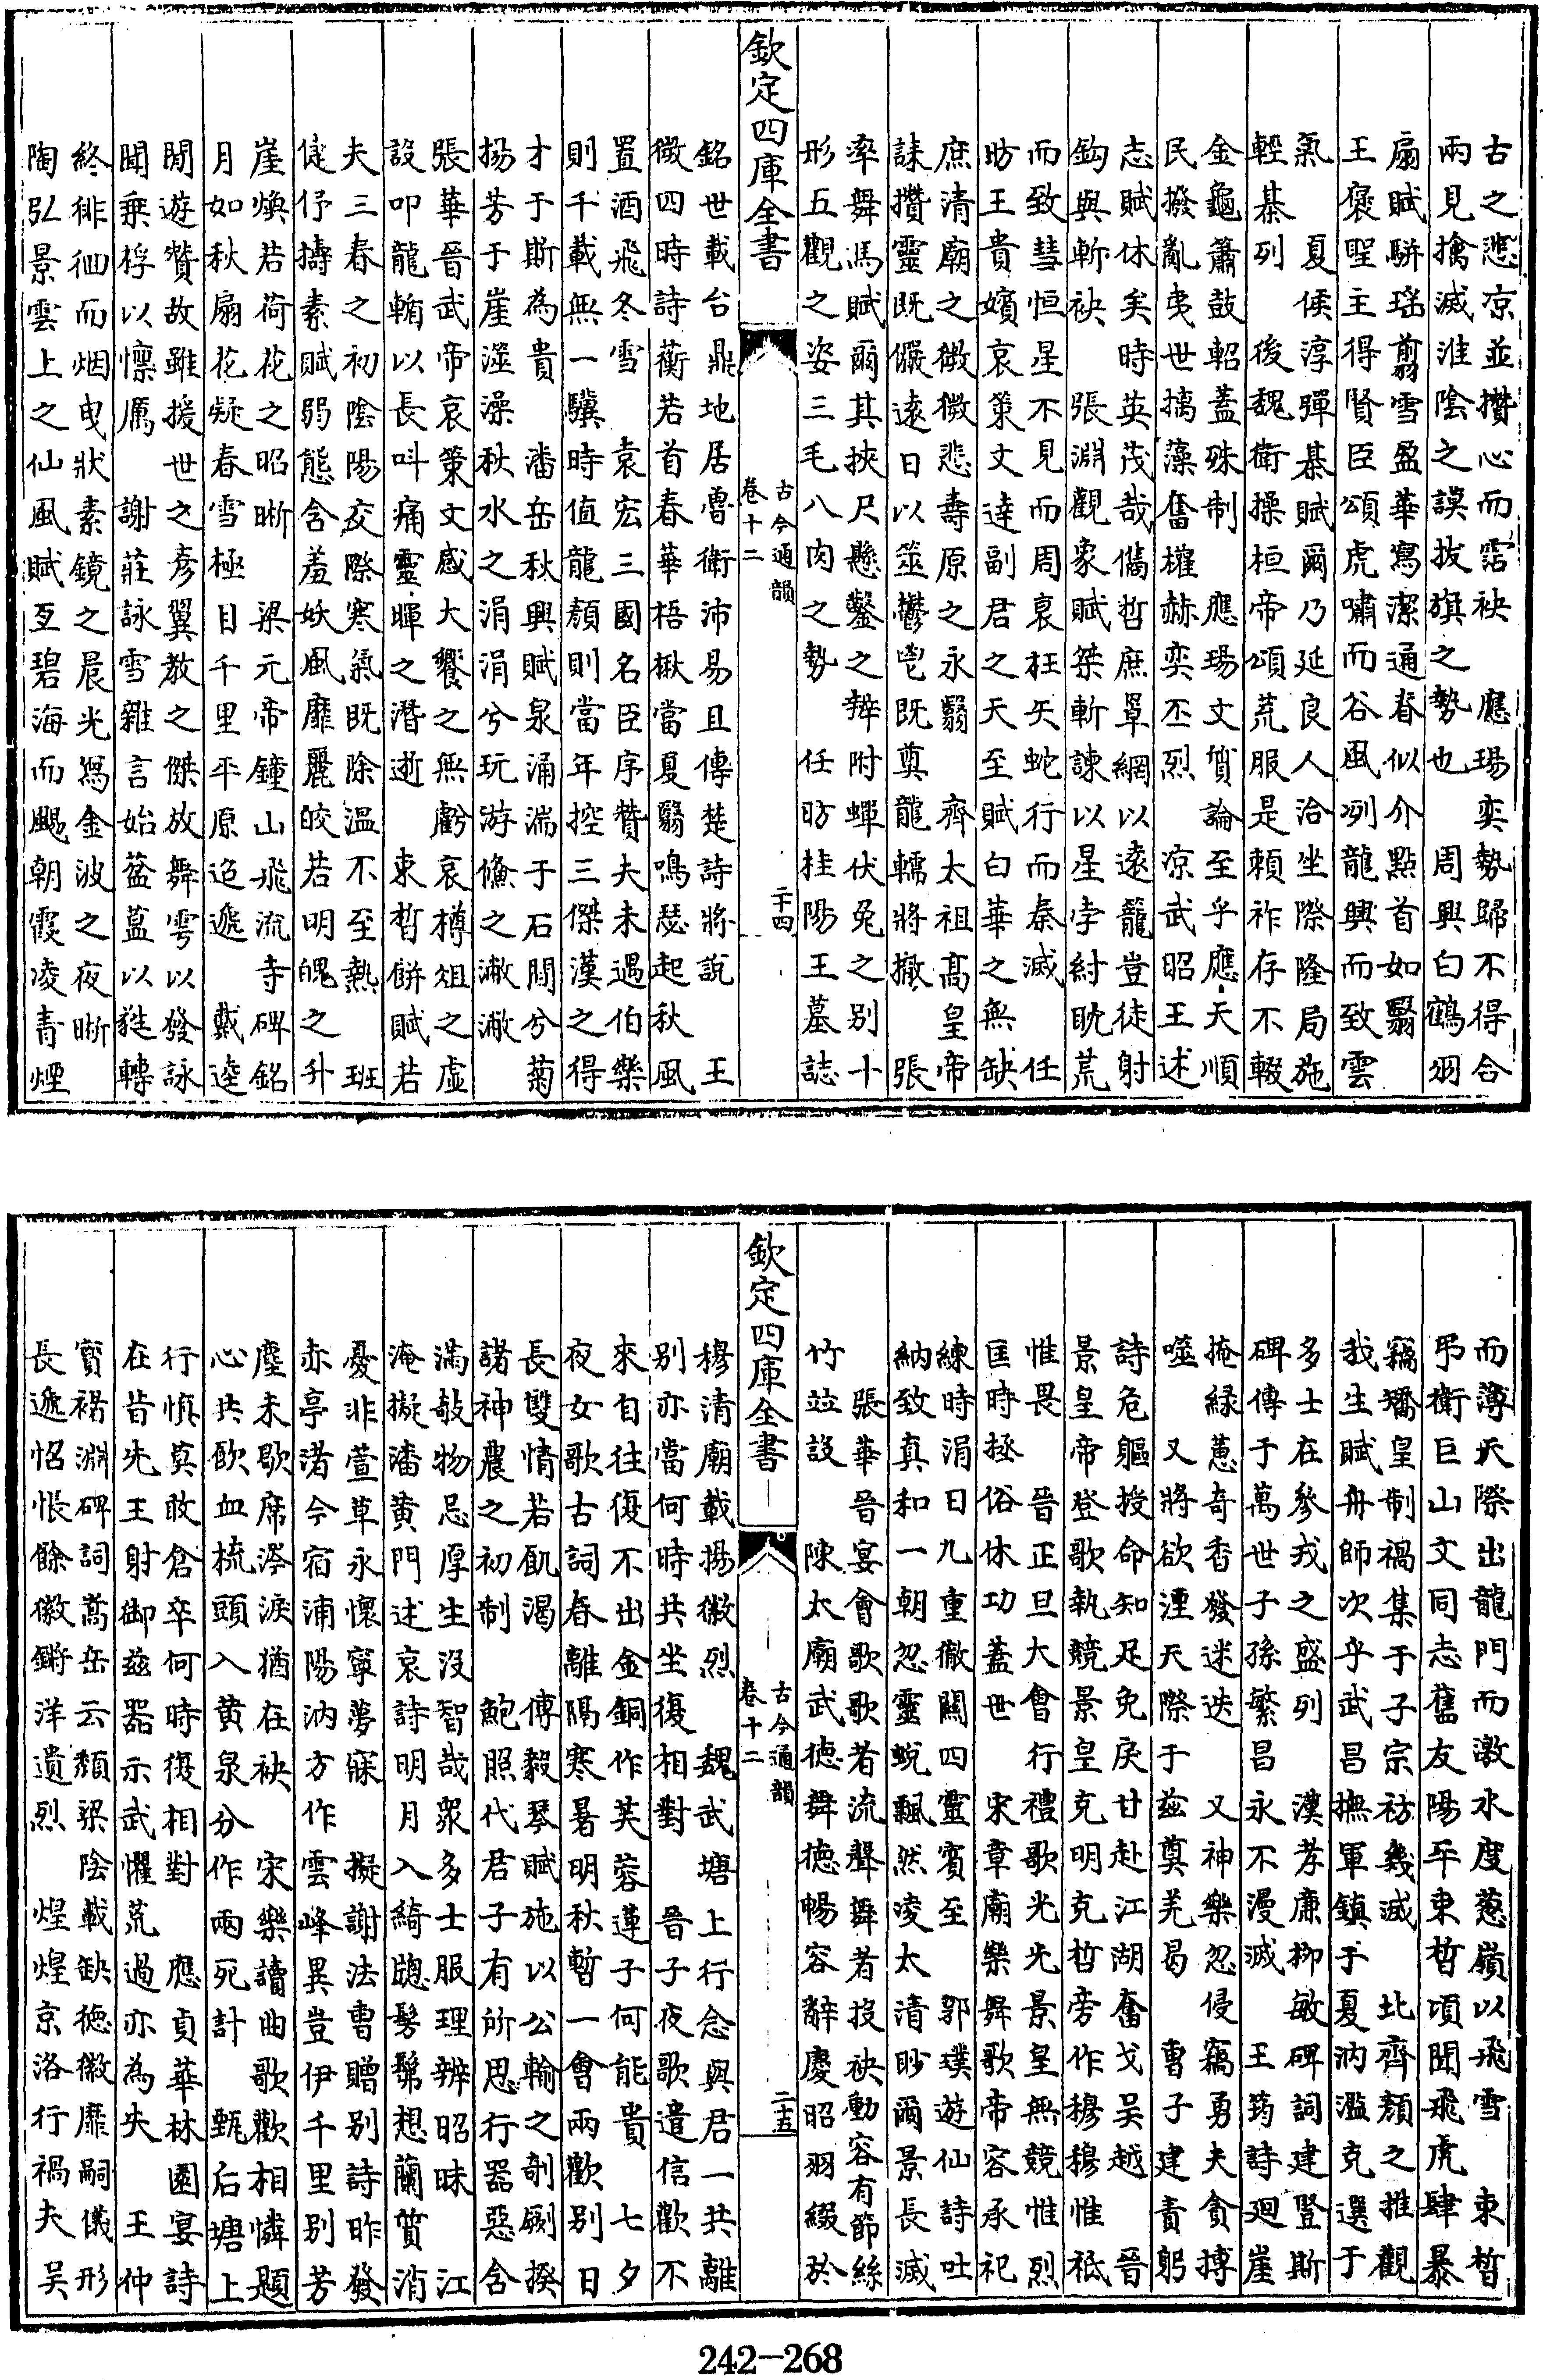 古之悲凉並攢心而霑袂　應瑒奕勢歸不得合
兩見擒滅淮陰之謨拔旗之勢也　周興白鶴羽
扇賦駢瑤翦雪盈華寫潔通春似介點首如翳
王褒聖主得賢臣頌虎嘯而谷風冽龍興而致雲
氣　夏侯淳彈棊賦爾乃延良人洽坐際隆局施
輕棊列　後魏衛操桓帝頌荒服是賴祚存不輟
金龜簫鼓軺蓋殊制　應瑒文質論至乎應天順
民撥亂夷世摛藻奮權赫奕丕烈　凉武昭王述
志賦休矣時英茂哉儁哲庶罩網以遠籠豈徒射
鈎與斬袂　張淵觀象賦桀斬諫以星孛紂耽荒
而致彗恒星不見而周衰枉矢蛇行而秦滅　任
昉王貴嬪哀策文達副君之天至賦白華之無缺
庶清廟之微微悲壽原之永翳　齊太祖髙皇帝
誄攢靈既儼遠日以筮鬱鬯既奠龍轜將撤　張
率舞馬賦爾其挾尺懸鑿之辨附蟬伏兔之别十
形五觀之姿三毛八肉之勢　任昉桂陽王墓誌
欽定四庫全書
古今通韻
卷十二
二十四
銘世載台鼎地居魯衛沛易且傳楚詩將說　王
微四時詩蘅若首春華梧楸當夏翳鳴瑟起秋風
置酒飛冬雪　袁宏三國名臣序贊夫未遇伯樂
則千載無一驥時值龍顔則當年控三傑漢之得
才于斯為貴　潘岳秋興賦泉涌湍于石間兮菊
揚芳于崖澨澡秋水之涓涓兮玩游鯈之潎潎
張華晉武帝哀策文感大饗之無虧哀樽俎之虛
設叩龍輴以長叫痛靈暉之潛逝　束晳餅賦若
夫三春之初陰陽交際寒氣既除溫不至熱　班
倢伃擣素賦弱態含羞妖風靡麗皎若明魄之升
崖煥若荷花之昭晣　梁元帝鐘山飛流寺碑銘
月如秋扇花疑春雪極目千里平原迢遞　戴逵
閒遊贊故雖援世之彥翼教之傑放舞雩以發詠
聞乘桴以懔厲　謝莊詠雪雜言始葐蒀以蕤轉
終徘徊而烟曳狀素鏡之晨光寫金波之夜晣
陶弘景雲上之仙風賦亙碧海而颺朝霞凌青煙
而薄天際出龍門而激水度蔥嶺以飛雪　束晳
弔衛巨山文同志舊友陽平束晳頃聞飛虎肆暴
竊矯皇制禍集于子宗祊幾滅　北齊顔之推觀
我生賦舟師次乎武昌撫軍鎮于夏汭濫充選于
多士在參戎之盛列　漢孝廉栁敏碑詞建豎斯
碑傳于萬世子孫繁昌永不漫滅　王筠詩廻崖
掩緑蕙奇香發迷迭　又神樂忽侵竊勇夫貪搏
噬　又將欲湮天際于茲奠羌曷　曹子建責躬
詩危軀授命知足免戾甘赴江湖奮戈吴越　晉
景皇帝登歌執競景皇克明克哲旁作穆穆惟祗
惟畏　晉正旦大會行禮歌光光景皇無競惟烈
匡時拯俗休功蓋世　宋章廟樂舞歌帝容承祀
練時涓日九重徹關四靈賓至　郭璞遊仙詩吐
納致真和一朝忽靈蛻飄然凌太清眇爾景長滅
張華晉宴會歌歌者流聲舞者投袂動容有節絲
竹竝設　陳太廟武德舞德暢容辭慶昭羽綴於
欽定四庫全書
古今通韻
卷十二
二十五
穆清廟載揚徽烈　魏武塘上行念與君一共離
别亦當何時共坐復相對　晉子夜歌遣信歡不
來自往復不出金銅作芙蓉蓮子何能貴　七夕
夜女歌古詞春離隔寒暑明秋暫一會兩歡别日
長雙情若飢渴　傅毅琴賦施以公輸之剞劂揆
諸神農之初制　鮑照代君子有所思行器惡含
滿敧物忌厚生没智哉衆多士服理辨昭昧　江
淹擬潘黄門述哀詩明月入綺牕髣髴想蘭質消
憂非萱草永懷寧夢寐　擬謝法曹贈别詩昨發
赤亭渚今宿浦陽汭方作雲峰異豈伊千里别芳
塵未歇席涔淚猶在袂　宋樂讀曲歌歡相憐題
心共飲血梳頭入黄泉分作兩死計　甄后塘上
行慎莫敢倉卒何時復相對　應貞華林園宴詩
在昔先王射御茲器示武懼荒過亦為失　王仲
寳褚淵碑詞嵩岳云頹梁陰載缺德徽靡嗣儀形
長逝怊悵餘徽鏘洋遺烈　煌煌京洛行禍夫吴
242-268